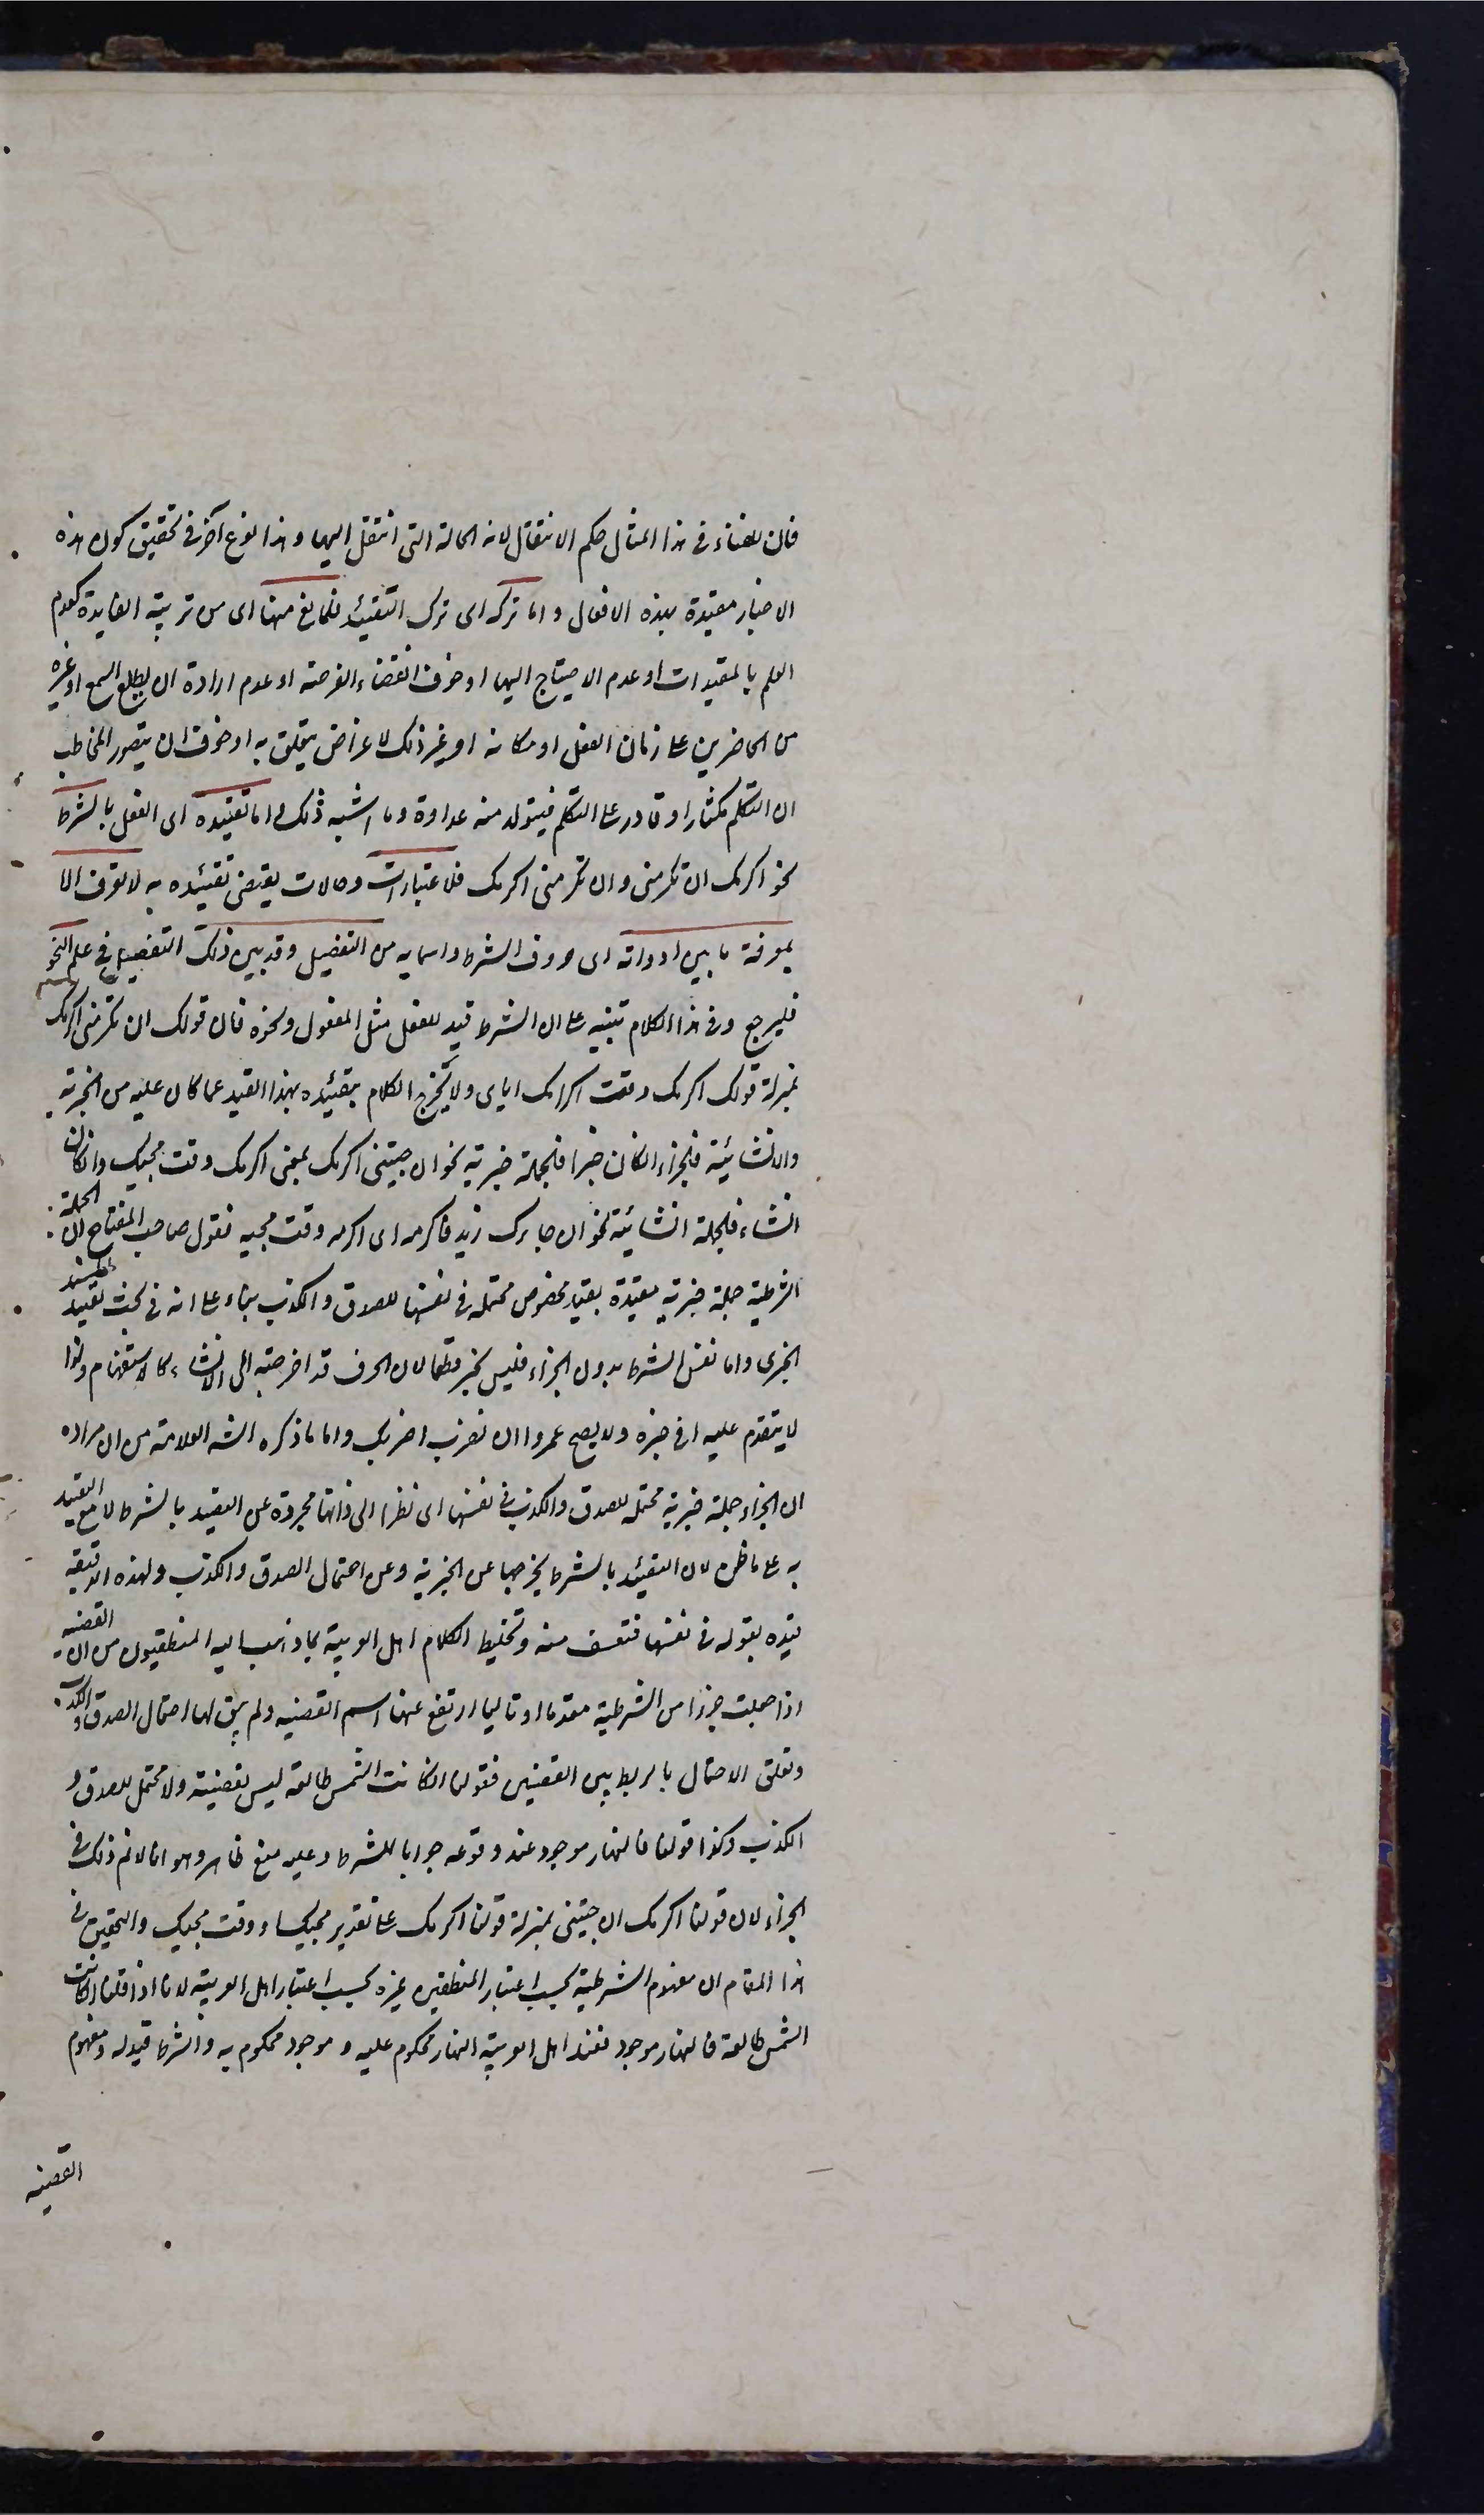 فان للغناء فى هذا المثال حكم الانتقال لانه الحالة التى انتقل اليها وهذا نوع آخر فى تحقيق كون هذه
الاخبار مقيدة بهذه الافعال واما تركه اى ترك التقييد فلمانع منها اى من تربية الفايدة كعدم
العلم بالمقيدات او عدم الاحتياج اليها او خوف انقضاء الفرصة او عدم ارادة ان يطلع السمع او غيره
من الحاضرين على زمان الفعل او مكانه او غير ذلك لاغراض يتعلق به او خوف ان يتصور المخاطب
ان المتكلم مكثار او قادر على التكلم فيتولد منه عداوة وما اشبه ذلك واما تقييده اى الفعل بالشرط
نحو اكرمك ان تكرمنى وان تكرمنى اكرمك فلاعتبارات وحالات يقتضى تقييده به لا تعرف الا
بمعرفة ما بين ادواته اى حروف الشرط واسمايه من التفصيل وقد بين ذلك التفصيل فى علم النحو
فليرجع وفى هذا الكلام تنبيه على ان الشرط قيد للفعل مثل المفعول ونحوه فان قولك ان تكرمنى اكرمك
بمنزلة قولك اكرمك وقت اكرامك اياى ولا يخرج الكلام بتقييده بهذا القيد عما كان عليه من الخبرية
والانشائية فالجزاء ان كان خبرا فالجملة خبرية نحو ان جيتنى اكرمك بمعنى اكرمك وقت مجيك وانكان
انشاء فالجملة انشائية نحو ان جاءك زيد فاكرمه اى اكرمه وقت مجيه فقول صاحب المفتاح ان الجملة
الشرطية جملة خبرية مقيدة بقيد مخصوص محتملة فى نفسها للصدق والكذب بناء على انه فى بحث تقييد المسند
الخبرى واما نفس الشرط بدون الجزاء فليس بخبر قطعا لان الحرف قد اخرجته الى الانشاء كالاستفهام ولهذا
لا يتقدم عليه ما فى حيزه ولا يصح عمروا ان تضرب اضربك واما ما ذكره الشه العلامة من ان مراده
ان الجزاء جملة خبرية محتملة للصدق والكذب فى نفسها اى نظرا الى ذاتها مجردة عن التقييد بالشرط لا مع التقييد
به على ما ظن لان التقييد بالشرط يخرجها عن الخبرية وعن احتمال الصدق والكذب ولهذه الدقيقة
قيده بقوله فى نفسها فتعسف منه وتخليط لكلام اهل العربية بما ذهب اليه المنطقيون من ان القضية
اذا جعلت جزءا من الشرطية مقدما او تاليا ارتفع عنها اسم القضية ولم يبق لها احتمال الصدق والكذب
وتعلق الاحتمال بالربط بين القضيتين فقولنا انكانت الشمس طالعة ليس بقضية ولا محتمل للصدق و
الكذب وكذا قولنا فالنهار موجود عند وقوعه جوابا للشرط وعليه منع ظاهر وهو انا لانم ذلك فى
الجزاء لان قولنا اكرمك ان جيتنى بمنزلة قولنا اكرمك على تقدير مجيك او وقت مجيك والتحقيق فى
هذا المقام ان مفهوم الشرطية بحسب اعتبار المنطقيين غيره بحسب اعتبار اهل العربية لانا اذا قلنا انكانت
الشمس طالعة فالنهار موجود فعند اهل العربية النهار محكوم عليه وموجود محكوم به والشرط قيد له ومفهوم
القضيه